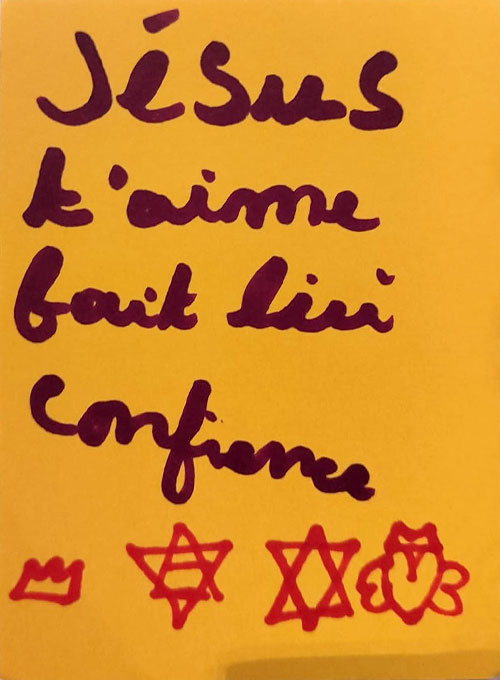 Jésus
t'aime
fait lui
confience